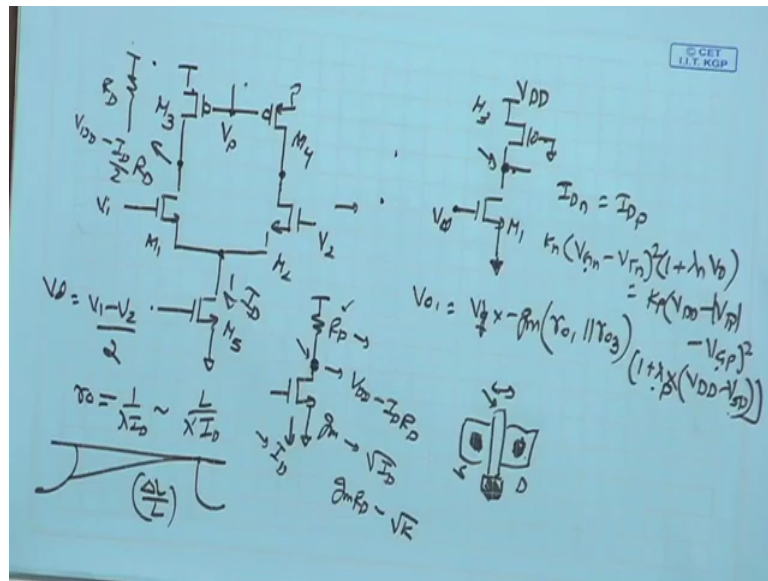 © CET
I.I.T. KGP
R_D
M3
V_P
M4
V_DD - I_D/2 R_D
V1
M1
M2
V2
I_D
M5
Vd = (V1 - V2)/2
r0 = 1/(λI_D) ~ L/(λ'I_D)
(ΔL/L)
R_D
V_DD - I_D R_D
I_D
gm → √I_D
gm R_D - √K
V_DD
M3
M1
I_Dn = I_Dp
K_n (V_Gn - V_Tn)² (1 + λ_n V_D)
= K_p (V_DD - |V_Tp|
- V_GP)²
(1 + λ_p × (V_DD - V_SD))
V01 = × - gm (r01 || r03)
D